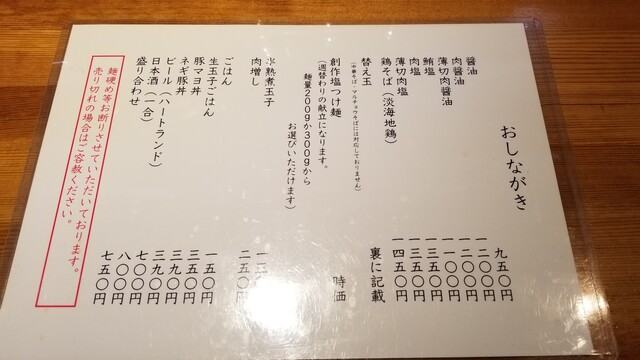 おしながき
醤油 九五〇円
肉醤油 一二〇〇円
薄切肉醤油 一二〇〇円
鮪塩 一一〇〇円
肉塩 一三五〇円
薄切肉塩 一三五〇円
鶏そば（淡海地鶏） 一四五〇円
替え玉 裏に記載
（中華そば・マルチョウそばには対応しておりません）
創作塩つけ麺 時価
（週替わりの献立になります。
麺量200gか300gから
お選びいただけます）
半熟煮玉子
肉増し 二五〇円
ごはん 一五〇円
生玉子ごはん 三五〇円
豚マヨ丼 三九〇円
ネギ豚丼 三九〇円
ビール（ハートランド） 七〇〇円
日本酒（一合） 八〇〇円
盛り合わせ 七五〇円
麺硬め等お断りさせていただいております。
売り切れの場合はご容赦ください。